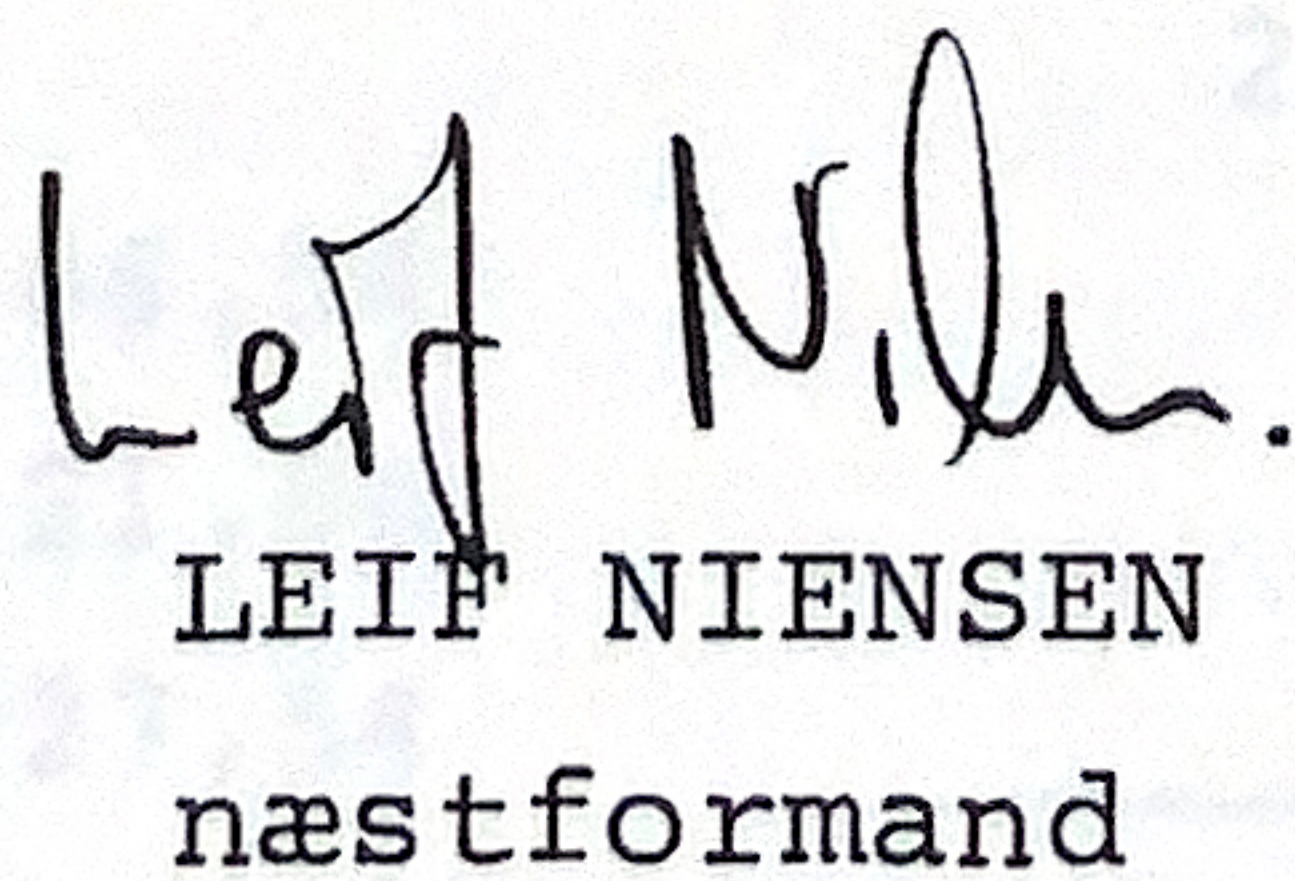 Leif Niln.
LEIF NIENSEN
næstformand